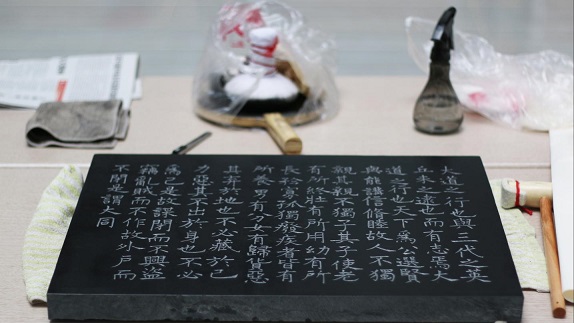 大道之行也與三代之英
丘未之逮也而有志焉大
道之行也天下為公選賢
與能講信修睦故人不獨
親其親不獨子其子使老
有所終壯有所用幼有所
長矜寡孤獨廢疾者皆有
所養男有分女有歸貨惡
其棄於地也不必藏於己
力惡其不出於身也不必
為己是故謀閉而不興盜
竊亂賊而不作故外戶而
不閉是謂大同